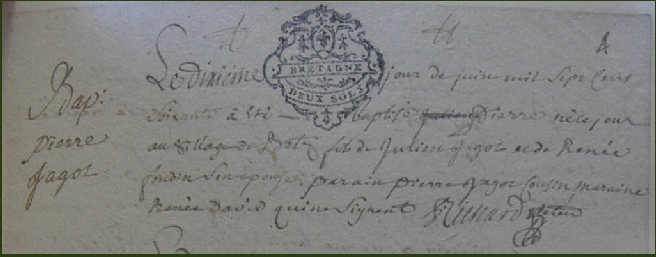 4
Bap:
pierre
Jagot
BRETAGNE
DEUX SOLS
Le dixieme jour de juin mil Sept Cens
Soixante à été baptisé Julien Pierre né ce jour
au Village de fils de Julien Jagot et de Renée
son epouse, parain pierre Jagot Cousin maraine
Renée David qui ne Signent Richard